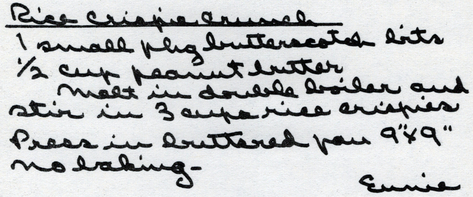 Rice Crispie Crunch
1 small pkg butterscotch bits
1/2 cup peanut butter
Melt in double boiler and
stir in 3 cups rice crispies
Press in buttered pan 9"x9"
No baking-
Eunie